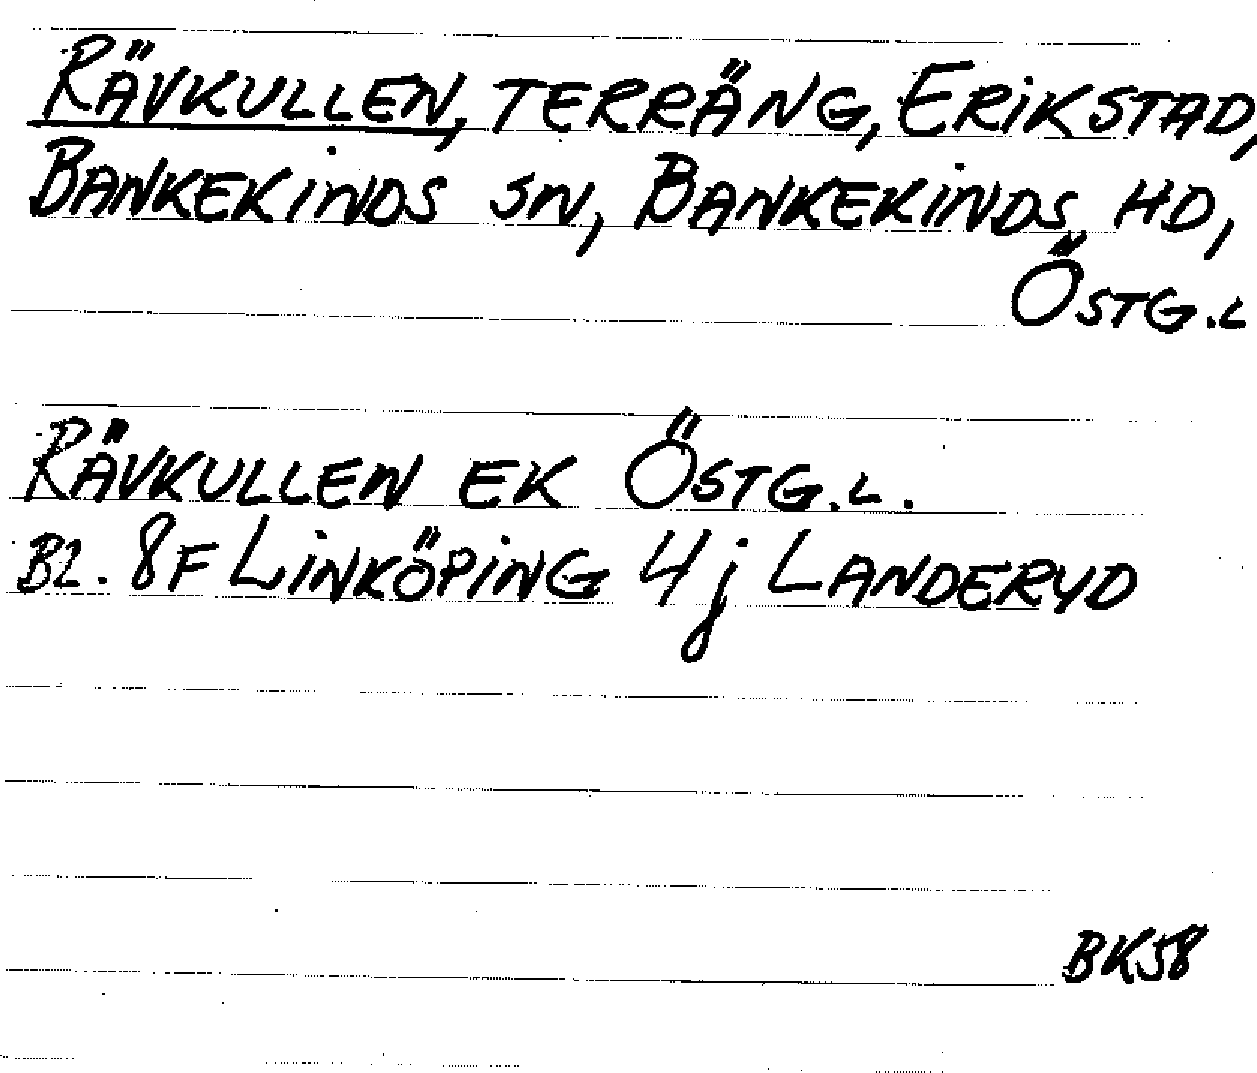 RÄVKULLEN, TERRÄNG, ERIKSTAD,
BANKEKINDS SN, BANKEKINDS HD,
ÖSTG.L
RÄVKULLEN EK ÖSTG.L.
BL. 8F LINKÖPING 4j LANDERYD
BK58